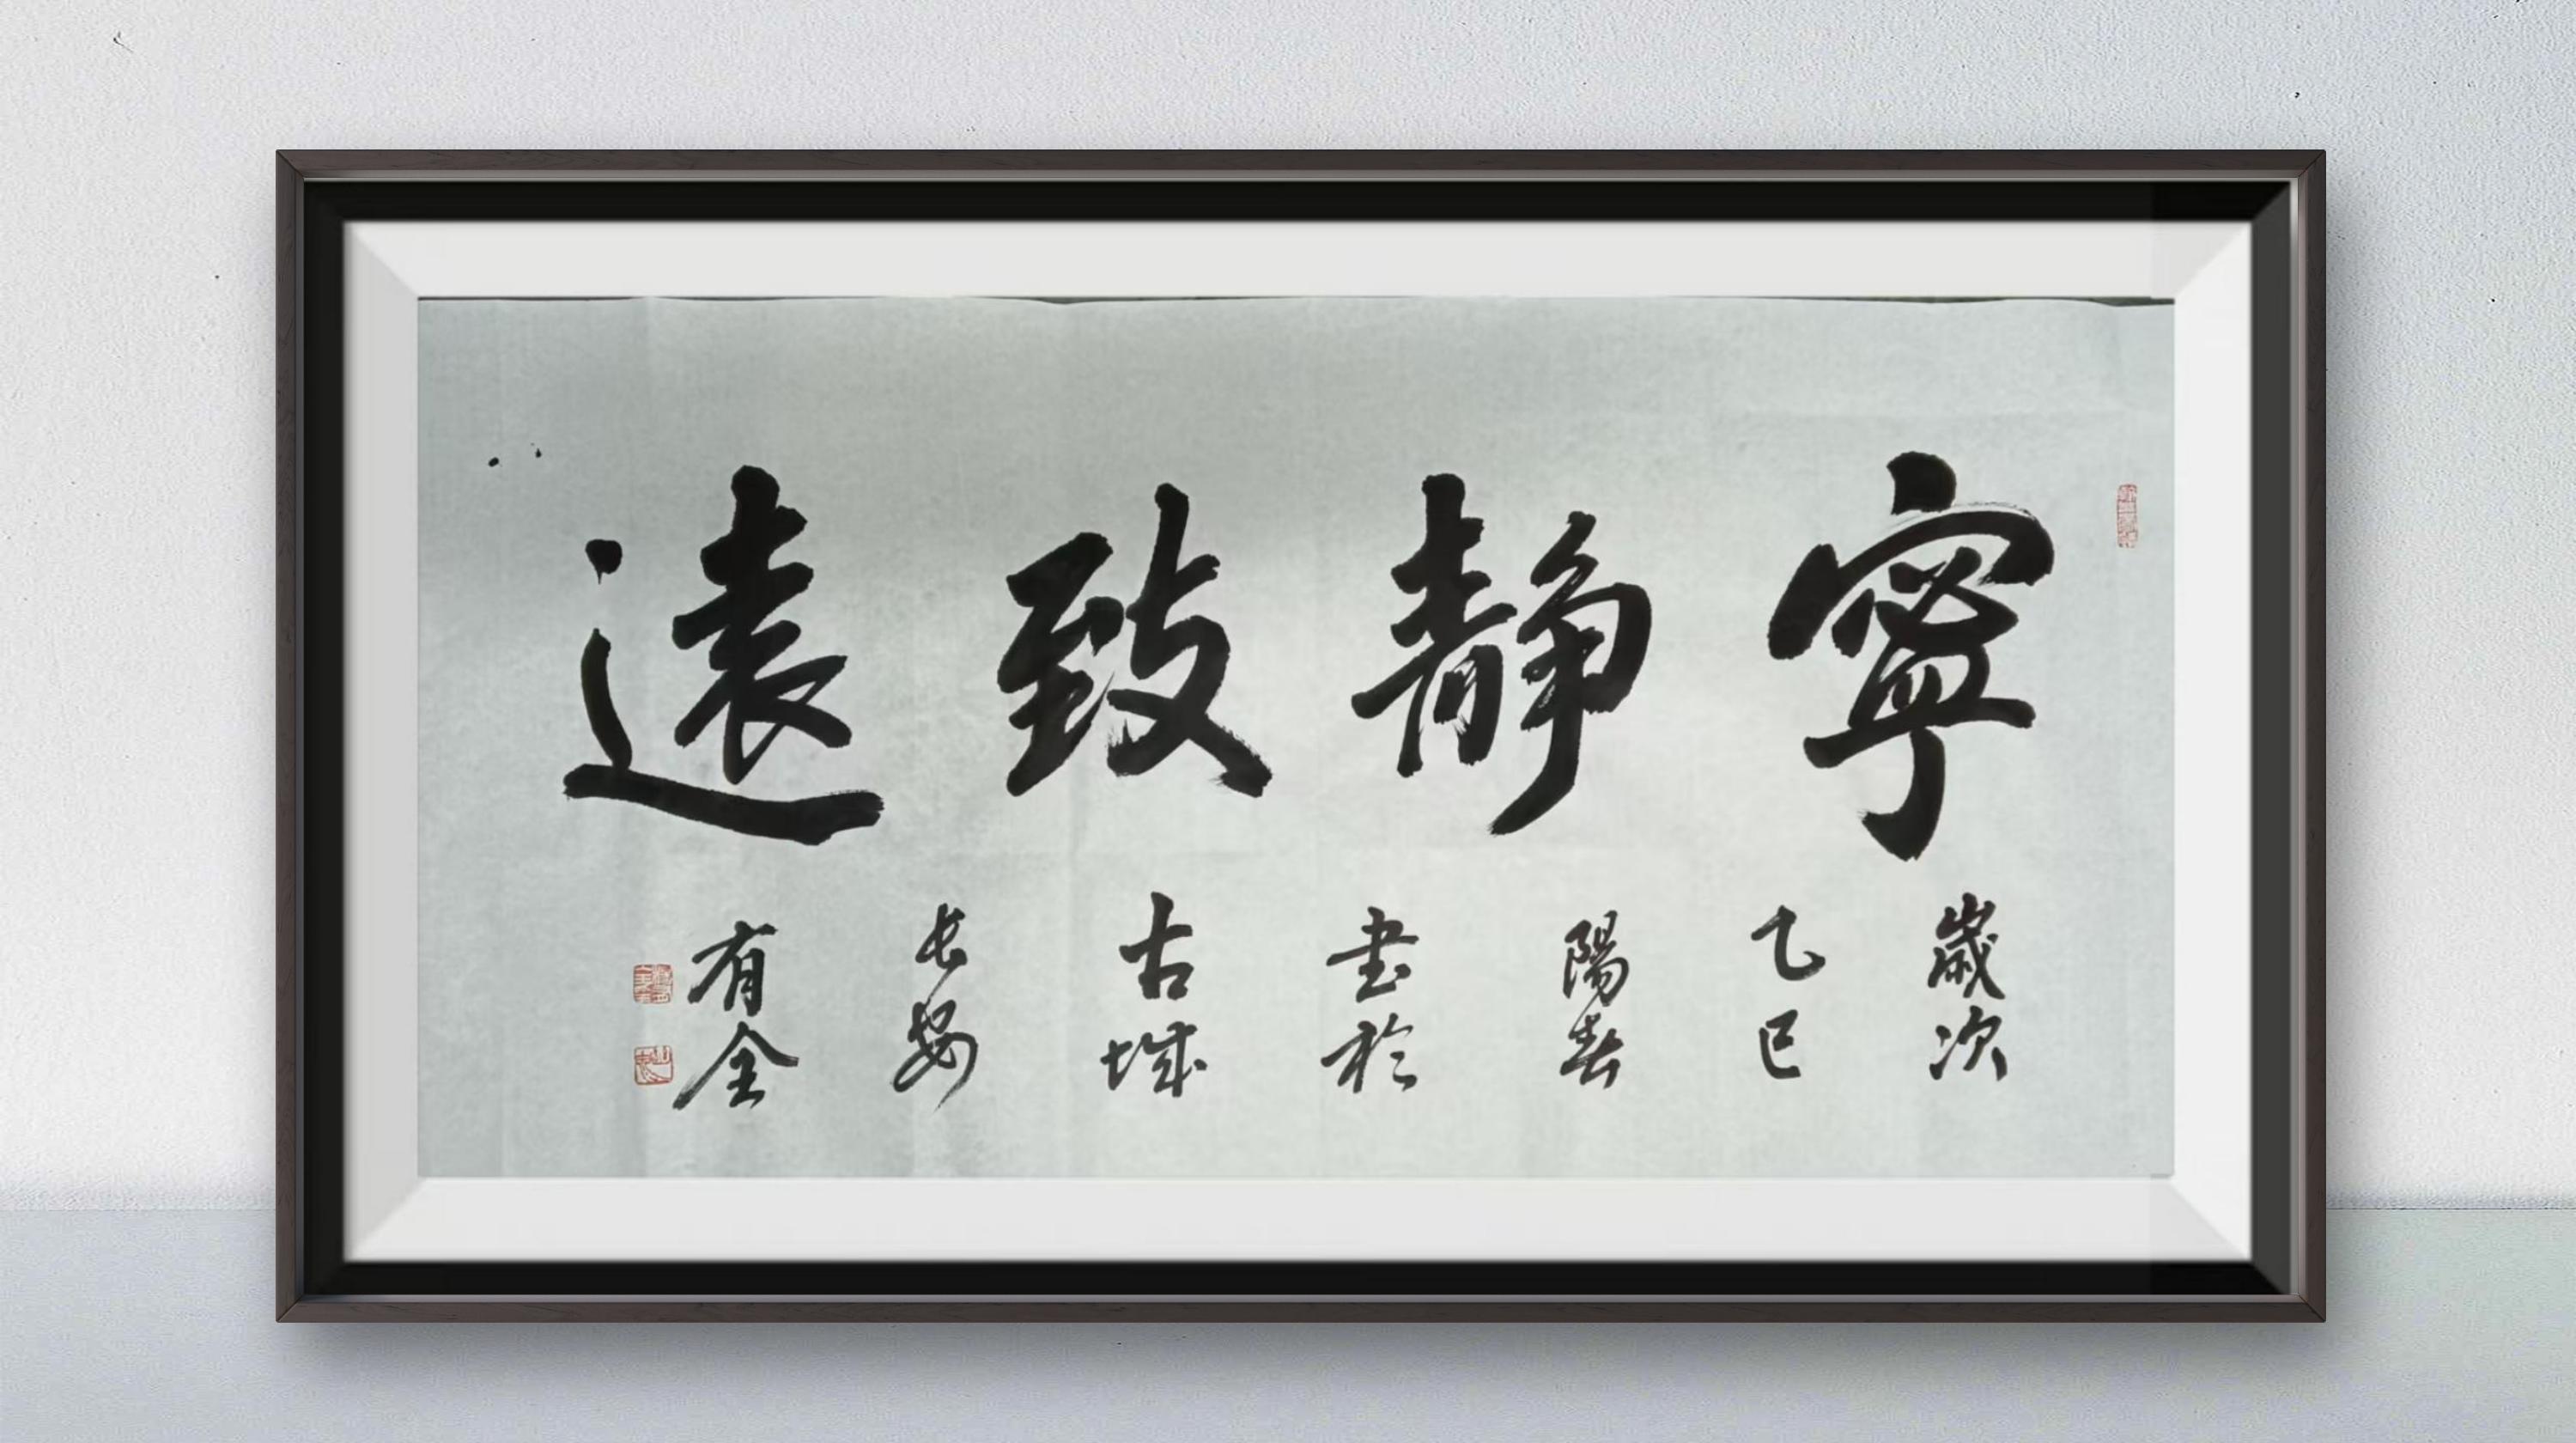 寧靜致遠
歲次
乙巳
陽春
書於
古城
長安
有全